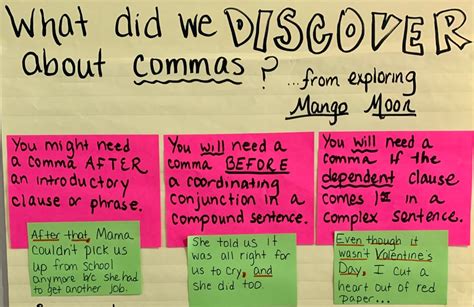 What did we DISCOVER
about commas?
...from exploring
Mango Moon
You might need
a comma AFTER
an introductory
clause or phrase.
After that, Mama
couldn't pick us
up from school
anymore b/c she had
to get another job.
You will need a
comma BEFORE
a coordinating
conjunction in a
compound sentence.
She told us it
was all right for
us to cry, and
she did too.
You will need a
comma if the
dependent clause
comes 1st in a
complex sentence.
Even though it
wasn't Valentine's
Day, I cut a
heart out of red
paper...